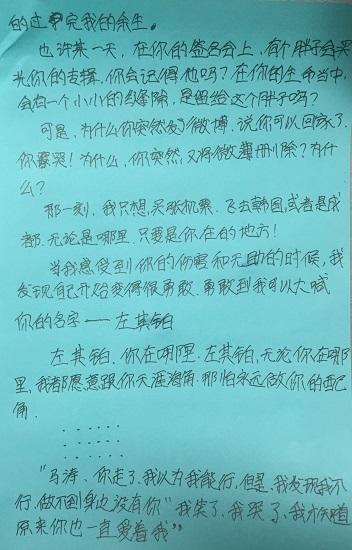 的过完我的余生。
也许某一天，在你的签名会上，有个胖子会买
光你的专辑，你会记得他吗？在你的生命当中，
会有一个小小的缝隙，是留给这个胖子吗？
可是，为什么你突然发了微博，说你可以回家了，
你羸哭！为什么，你突然，又将微薄册削除？为什
么？
那一刻，我只想，买张机票，飞去韩国，或者是成
都，无论是哪里，只要是你在的地方！
当我感受到你的伤害和无助的时候，我
发现自己开始变得很勇敢，勇敢到我可以大喊
你的名字——左其铂
左其铂，你在哪里，左其铂，无论你在哪
里，我都愿意跟你天涯海角，那怕永远做你的配
角，
......
......
“马涛，你走了，我以为我能行，但是，我发现我不
行，做不到身边没有你”我笑了，我哭了，我才知道
原来你也一直爱着我”